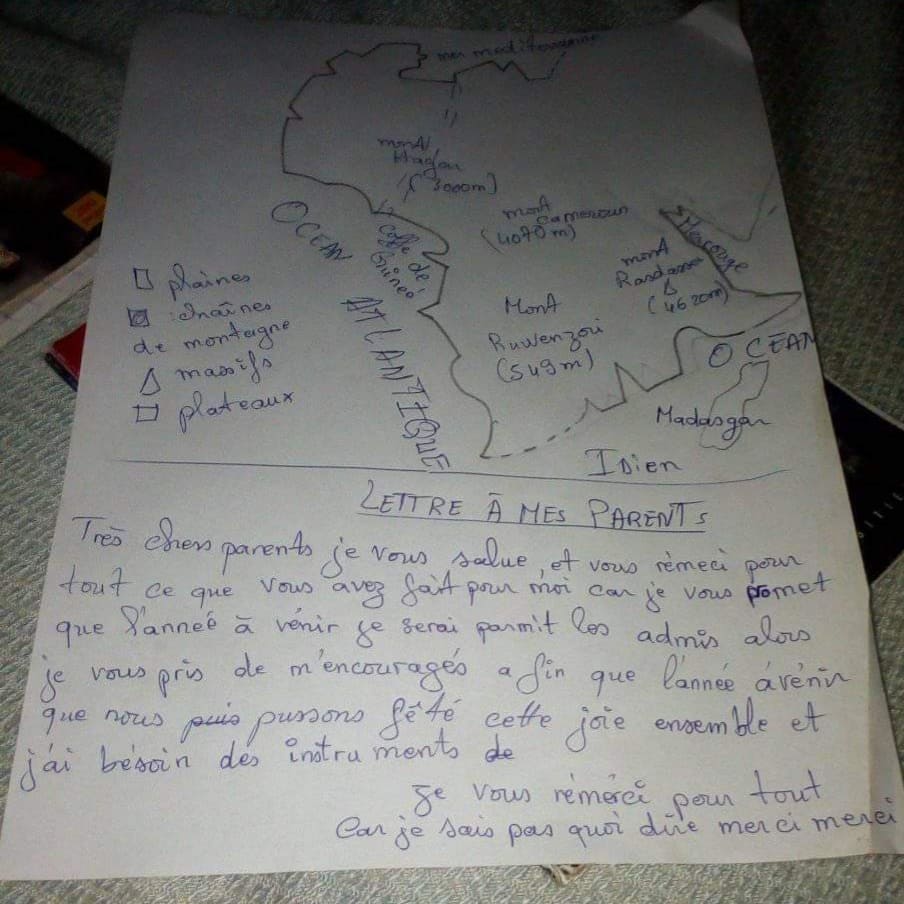 mer mediterranne
monA
Hagar
(3000m)
OCEAN
ATLANTIQUE
Golfe de
Guinee
mont
Cameroun
(4070m)
Mer rouge
mont
Rasdasse
(4620m)
Mont
Ruwenzori
(549m)
OCEAN
Madasgar
Idien
plaines
:chaînes
de montagne
massifs
plateaux
LETTRE À MES PARENTS
Très chers parents je vous salue, et vous rémeci pour
tout ce que vous avez fait pour moi car je vous pomet
que l'anneé à vénir je serai parmit les admis alors
je vous pris de m'encouragés a fin que l'année àvénir
que nous puis pussons fêté cette joie ensemble et
j'ai bésoin dés instruments de
je vous rémérci pour tout
Car je sais pas quoi dire merci merci